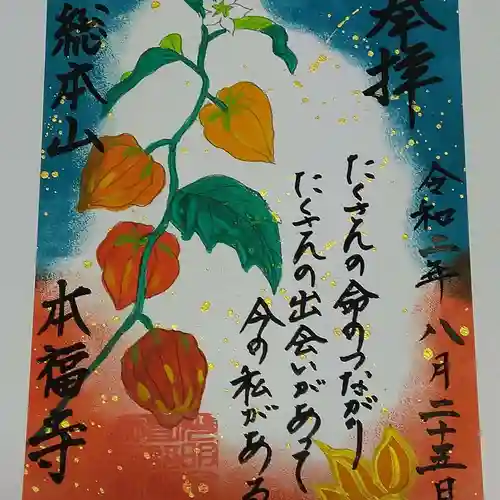 奉拝
令和二年八月二十五日
たくさんの命のつながり
たくさんの出会いがあって
今の私がある
総本山
本福寺